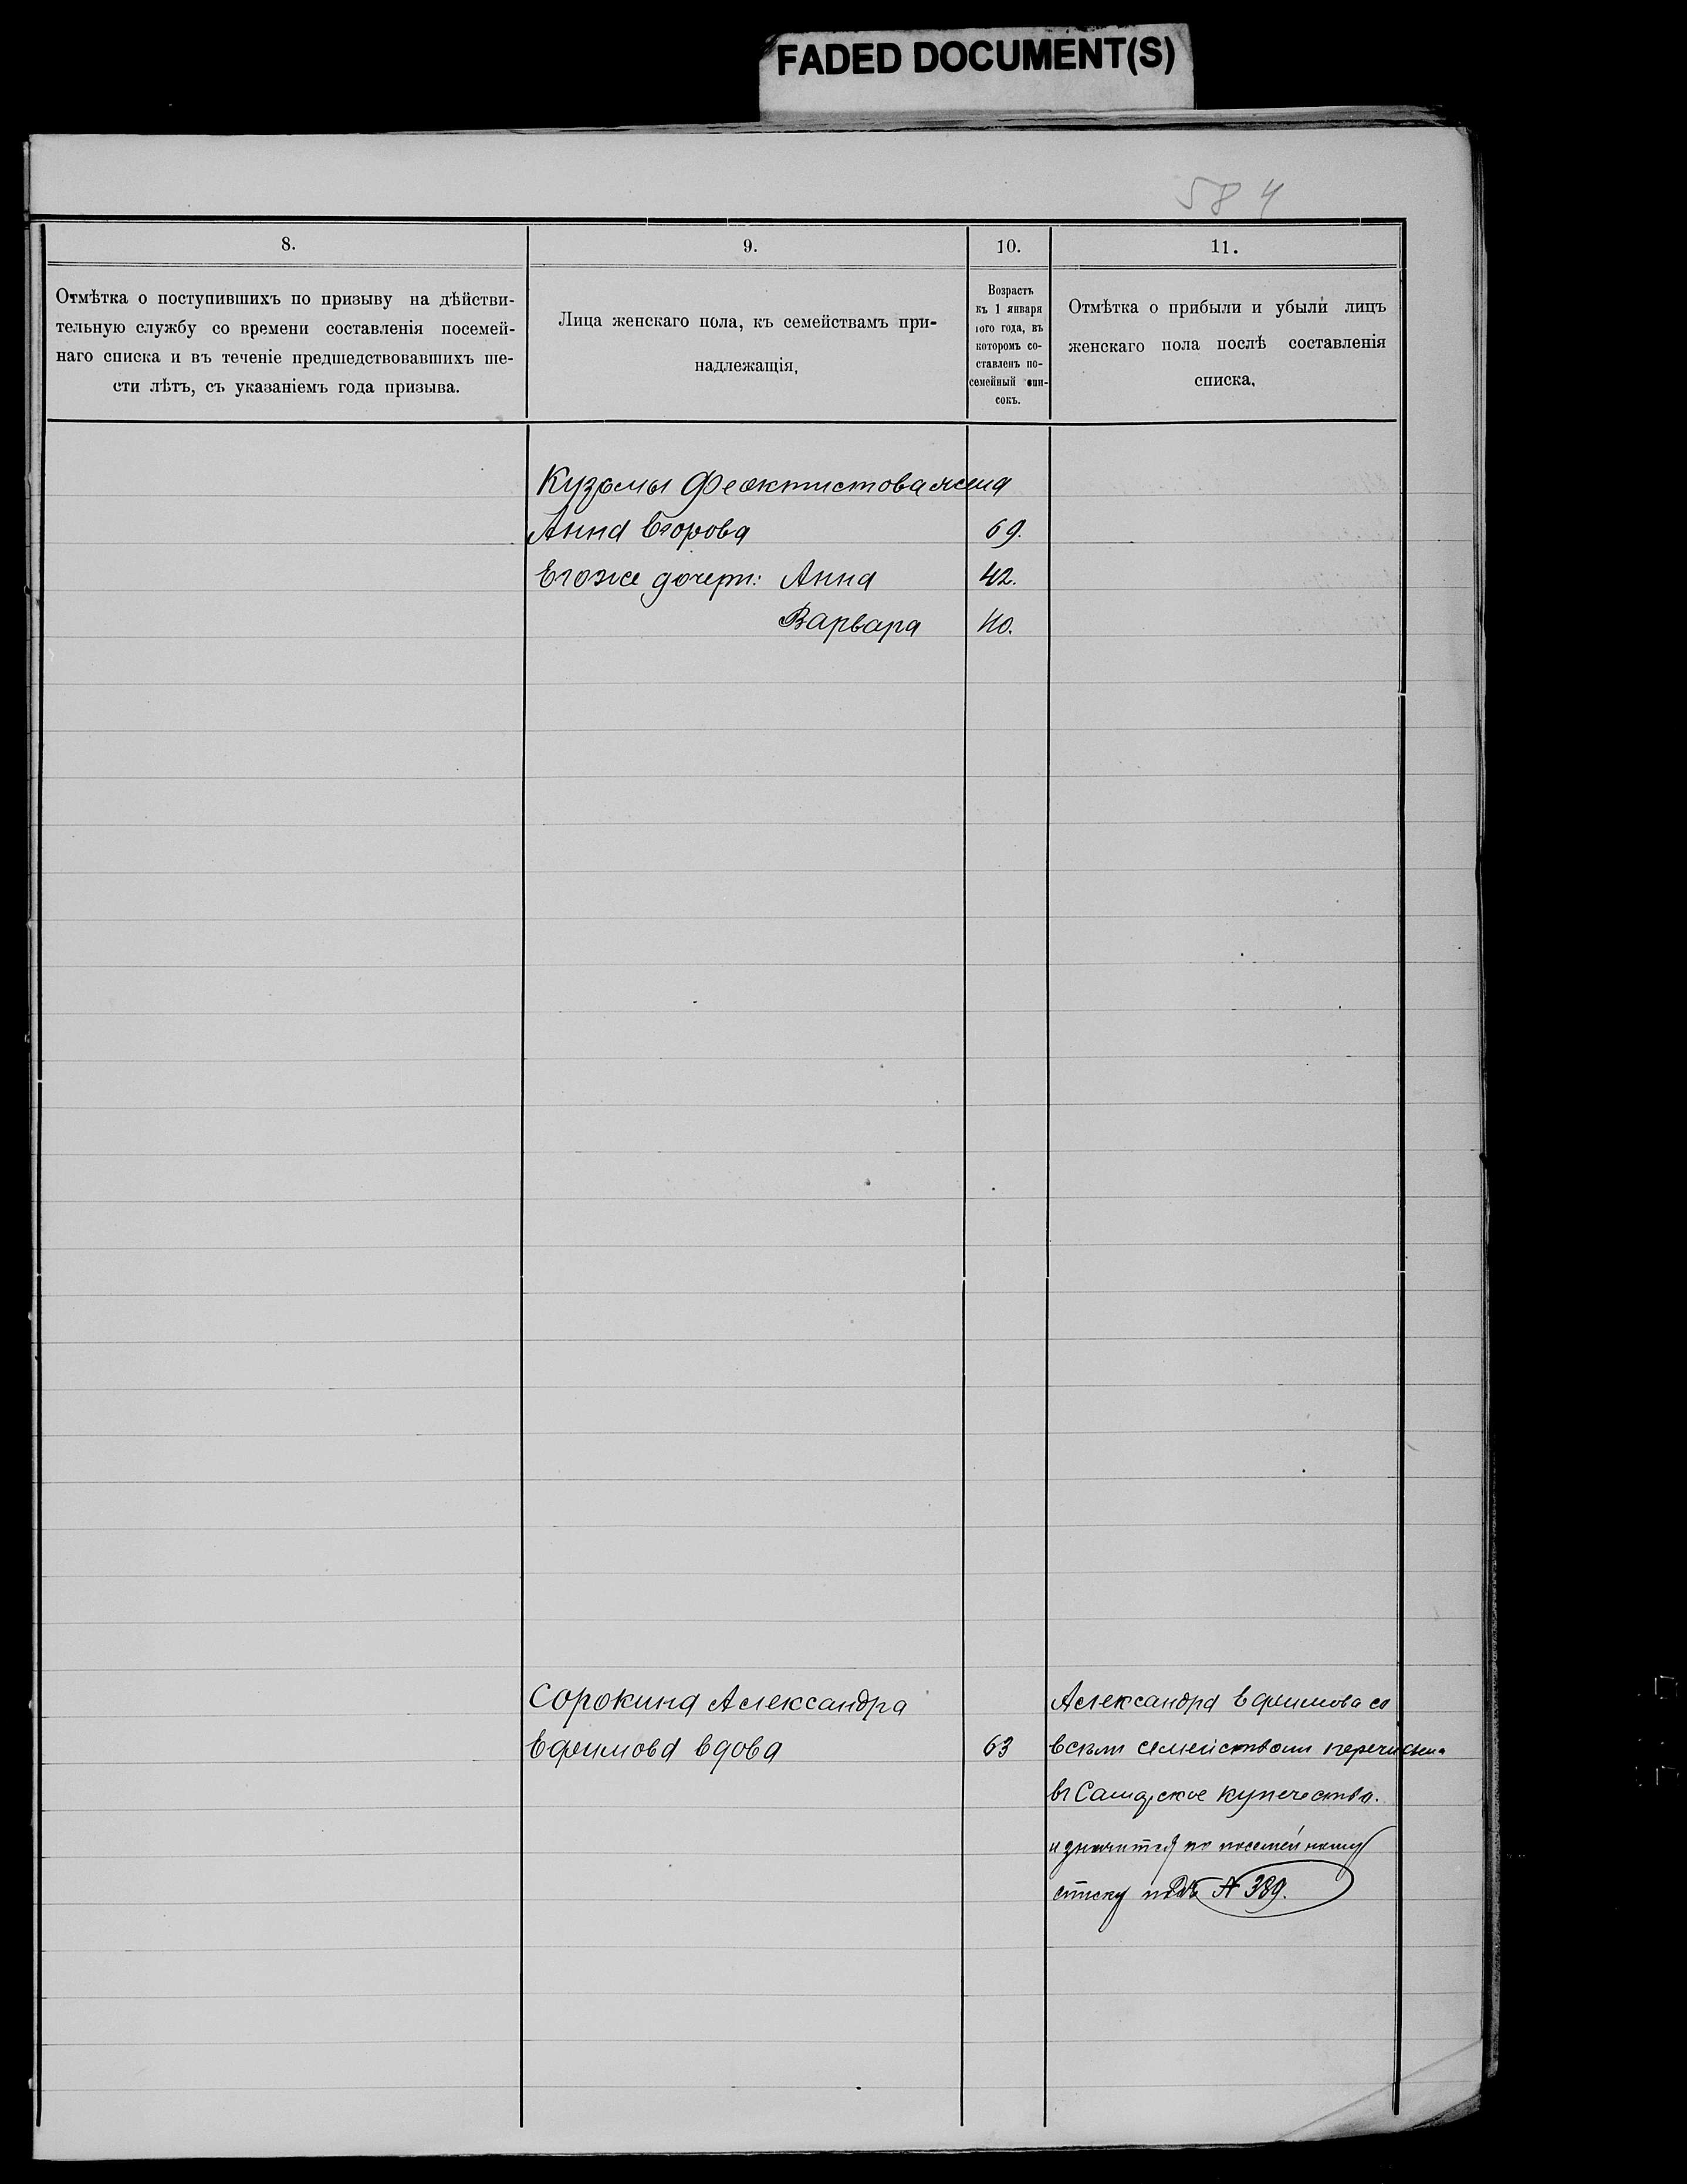 FADED DOCUMENT(S)
584
8.
9.
10.
11.
Отмѣтка о поступившихъ по призыву на дѣйстви-
тельную службу со времени составленія посемей-
наго списка и въ теченіе предшедствовавшихъ ше-
сти лѣтъ, съ указаніемъ года призыва.
Лица женскаго пола, къ семействамъ при-
надлежащія,
Возрастъ
къ 1 января
того года, въ
которомъ со-
ставленъ по-
семейный спи-
сокъ.
Отмѣтка о прибыли и убыли лицъ
женскаго пола послѣ составленія
списка.
Кузьмы Феоктистова жена
Анна Егорова 69.
Его же дочери: Анна 42.
Варвара 40.
Сорокина Александра
Ефимова вдова 63
Александра Ефимова со
всѣмъ семействомъ перечислена
въ Самарское купечество.
и значится по посемейному
списку подъ № 389.